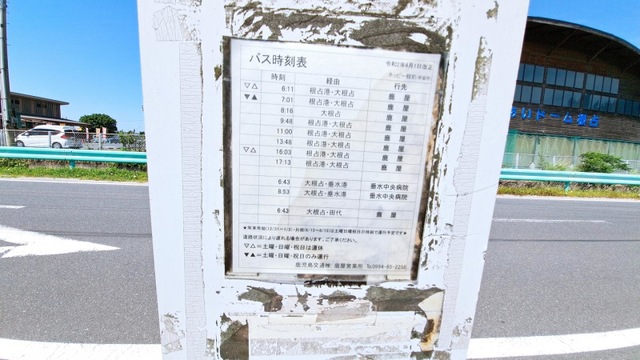 バス時刻表
時刻 経由 行先
▽△ 6:11 根占港・大根占 鹿屋
▼▲ 7:01 根占港・大根占 鹿屋
8:16 大根占 鹿屋
9:48 根占港・大根占 鹿屋
11:00 根占港・大根占 鹿屋
13:48 根占港・大根占 鹿屋
▽△ 16:03 根占港・大根占 鹿屋
17:13 根占港・大根占 鹿屋
6:43 大根占・垂水港 垂水中央病院
8:53 大根占・垂水港 垂水中央病院
6:43 大根占・田代 鹿屋
道路状況により遅れる場合があります、ご了承ください。
▽△＝土曜・日曜・祝日は運休
▼▲＝土曜・日曜・祝日のみ運行
鹿児島交通㈱ 鹿屋営業所